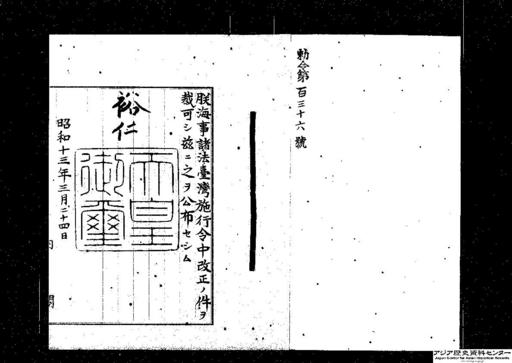 勅令第百三十六號
朕海事諸法臺灣施行令中改正ノ件ヲ
裁可シ茲ニ之ヲ公布セシム
裕仁
天皇御璽
昭和十三年三月二十四日
内閣
アジア歴史資料センター
Japan Center for Asian Historical Records